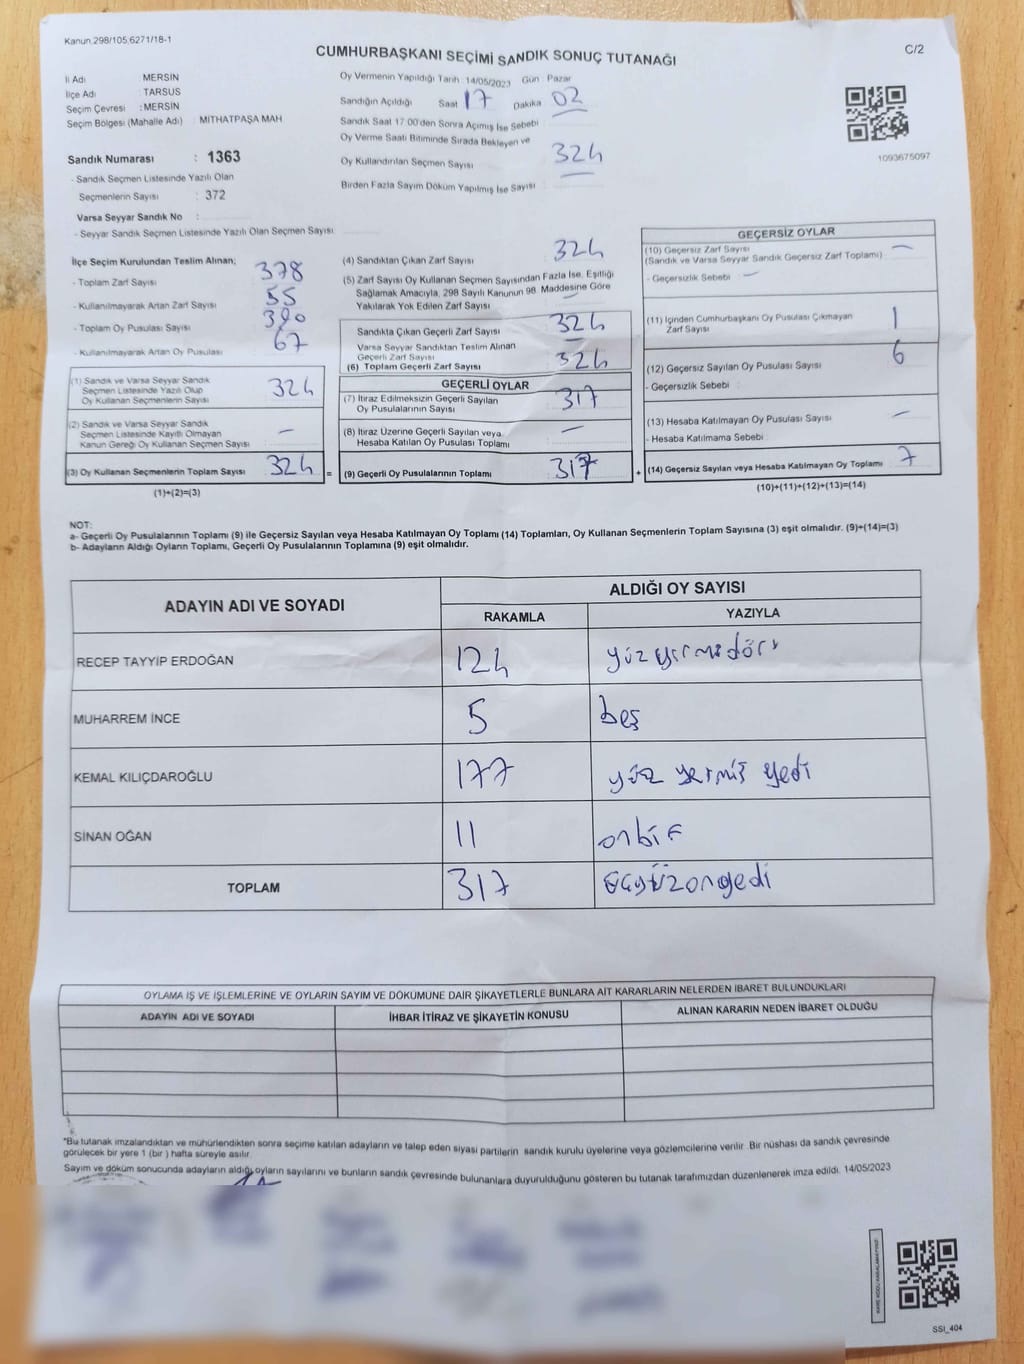 Kanun 298/105,6271/18-1
C/2
CUMHURBAŞKANI SEÇİMİ SANDIK SONUÇ TUTANAĞI
İl Adı MERSİN
İlçe Adı TARSUS
Seçim Çevresi : MERSİN
Seçim Bölgesi (Mahalle Adı) : MİTHATPAŞA MAH
Sandık Numarası : 1363
- Sandık Seçmen Listesinde Yazılı Olan
Seçmenlerin Sayısı : 372
Varsa Seyyar Sandık No :
- Seyyar Sandık Seçmen Listesinde Yazılı Olan Seçmen Sayısı
Oy Vermenin Yapıldığı Tarih 14/05/2023 Gün : Pazar
Sandığın Açıldığı Saat 17 Dakika 02
Sandık Saat 17.00'den Sonra Açımış İse Sebebi
Oy Verme Saati Bitiminde Sırada Bekleyen ve
Oy Kullandırılan Seçmen Sayısı 324
Birden Fazla Sayım Döküm Yapılmış İse Sayısı
1093675097
İlçe Seçim Kurulundan Teslim Alınan;
- Toplam Zarf Sayısı 378
- Kullanılmayarak Artan Zarf Sayısı 55
- Toplam Oy Pusulası Sayısı 390
- Kullanılmayarak Artan Oy Pusulası 67
(1) Sandık ve Varsa Seyyar Sandık
Seçmen Listesinde Yazılı Olup
Oy Kullanan Seçmenlerin Sayısı 324
(2) Sandık ve Varsa Seyyar Sandık
Seçmen Listesinde Kayıtlı Olmayan
Kanun Gereği Oy Kullanan Seçmen Sayısı –
(3) Oy Kullanan Seçmenlerin Toplam Sayısı 324 =
(1)+(2)=(3)
(4) Sandıktan Çıkan Zarf Sayısı 324
(5) Zarf Sayısı Oy Kullanan Seçmen Sayısından Fazla İse, Eşitliği
Sağlamak Amacıyla, 298 Sayılı Kanunun 98. Maddesine Göre
Yakılarak Yok Edilen Zarf Sayısı –
Sandıkta Çıkan Geçerli Zarf Sayısı 324
Varsa Seyyar Sandıktan Teslim Alınan
Geçerli Zarf Sayısı
(6) Toplam Geçerli Zarf Sayısı 324
GEÇERLİ OYLAR
(7) İtiraz Edilmeksizin Geçerli Sayılan
Oy Pusulalarının Sayısı 317
(8) İtiraz Üzerine Geçerli Sayılan veya
Hesaba Katılan Oy Pusulası Toplamı –
(9) Geçerli Oy Pusulalarının Toplamı 317 +
GEÇERSİZ OYLAR
(10) Geçersiz Zarf Sayısı –
(Sandık ve Varsa Seyyar Sandık Geçersiz Zarf Toplamı)
- Geçersizlik Sebebi : –
(11) İçinden Cumhurbaşkanı Oy Pusulası Çıkmayan
Zarf Sayısı 1
(12) Geçersiz Sayılan Oy Pusulası Sayısı 6
- Geçersizlik Sebebi :
(13) Hesaba Katılmayan Oy Pusulası Sayısı –
- Hesaba Katılmama Sebebi
(14) Geçersiz Sayılan veya Hesaba Katılmayan Oy Toplamı 7
(10)+(11)+(12)+(13)=(14)
NOT:
a- Geçerli Oy Pusulalarının Toplamı (9) ile Geçersiz Sayılan veya Hesaba Katılmayan Oy Toplamı (14) Toplamları, Oy Kullanan Seçmenlerin Toplam Sayısına (3) eşit olmalıdır. (9)+(14)=(3)
b- Adayların Aldığı Oyların Toplamı, Geçerli Oy Pusulalarının Toplamına (9) eşit olmalıdır.
ADAYIN ADI VE SOYADI
ALDIĞI OY SAYISI
RAKAMLA YAZIYLA
RECEP TAYYİP ERDOĞAN 124 yüz yirmi dört
MUHARREM İNCE 5 beş
KEMAL KILIÇDAROĞLU 177 yüz yetmiş yedi
SİNAN OĞAN 11 onbir
TOPLAM 317 üçyüzonyedi
OYLAMA İŞ VE İŞLEMLERİNE VE OYLARIN SAYIM VE DÖKÜMÜNE DAİR ŞİKAYETLERLE BUNLARA AİT KARARLARIN NELERDEN İBARET BULUNDUKLARI
ADAYIN ADI VE SOYADI İHBAR İTİRAZ VE ŞİKAYETİN KONUSU ALINAN KARARIN NEDEN İBARET OLDUĞU
*Bu tutanak imzalandıktan ve mühürlendikten sonra seçime katılan adayların ve talep eden siyasi partilerin sandık kurulu üyelerine veya gözlemcilerine verilir. Bir nüshası da sandık çevresinde
görülecek bir yere 1 (bir) hafta süreyle asılır.
Sayım ve döküm sonucunda adayların aldığı oyların sayılarını ve bunların sandık çevresinde bulunanlara duyurulduğunu gösteren bu tutanak tarafımızdan düzenlenerek imza edildi. 14/05/2023
SSI_404